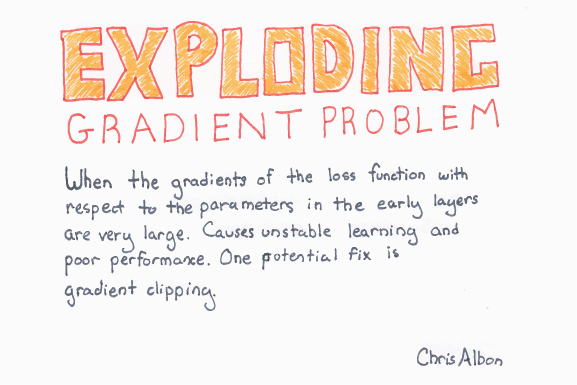 EXPLODING
GRADIENT PROBLEM
When the gradients of the loss function with
respect to the parameters in the early layers
are very large. Causes unstable learning and
poor performance. One potential fix is
gradient clipping.
Chris Albon